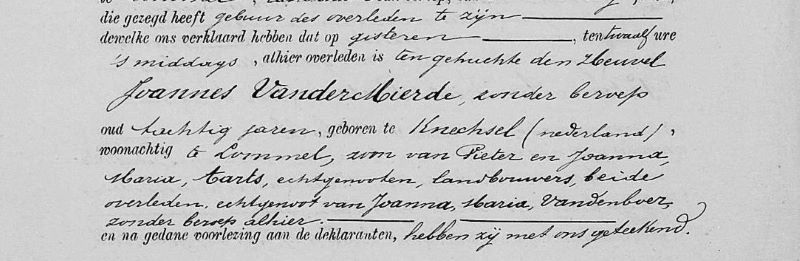 die gezegd heeft gebuur des overleden te zijn
dewelke ons verklaard hebben dat op gisteren, ten twaalf ure
's middags, alhier overleden is ten gehuchte den Heuvel
Joannes VanderMierde, zonder beroep
oud tachtig jaren, geboren te Knechsel (nederland),
woonachtig te Lommel, zoon van Pieter en Joanna,
Maria, Aarts, echtgenooten, landbouwers, beide
overleden, echtgenoot van Joanna, Maria, Vandenboer,
zonder beroep alhier.
en na gedane voorlezing aan de deklaranten, hebben zij met ons geteekend.